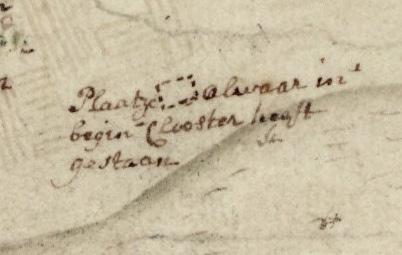 Plaatze alwaar in't
begin Clooster heeft
gestaan